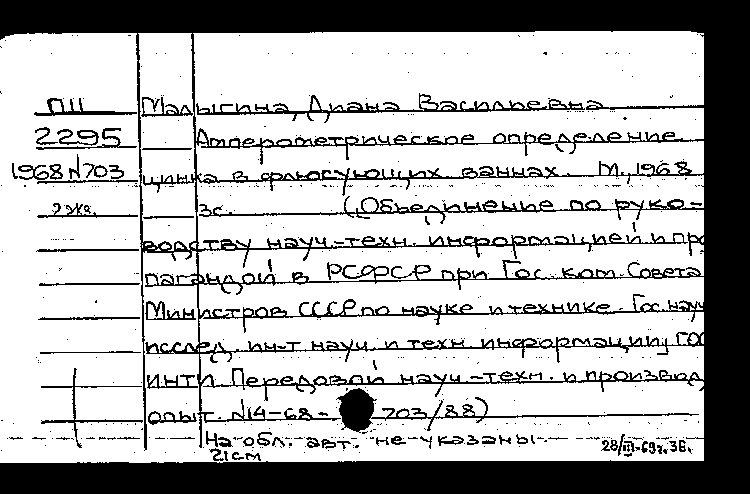 ПII Малыгина, Диана Васильевна
2295 Амперометрическое определение
1968 N703 цинка в флюсующих ваннах. М., 1968
2 экз. 3с. (Объединение по руко-
водству науч.-техн. информацией и про
пагандой в РСФСР при Гос. ком. Совета
Министров СССР по науке и технике. Гос. науч
исслед. ин-т науч. и техн. информации, ГОС
ИНТИ. Передовой науч.-техн. и производ.
опыт. N14-68- 703/88)
На обл. авт. не указаны
21см 28/III-69г. ЗВ.